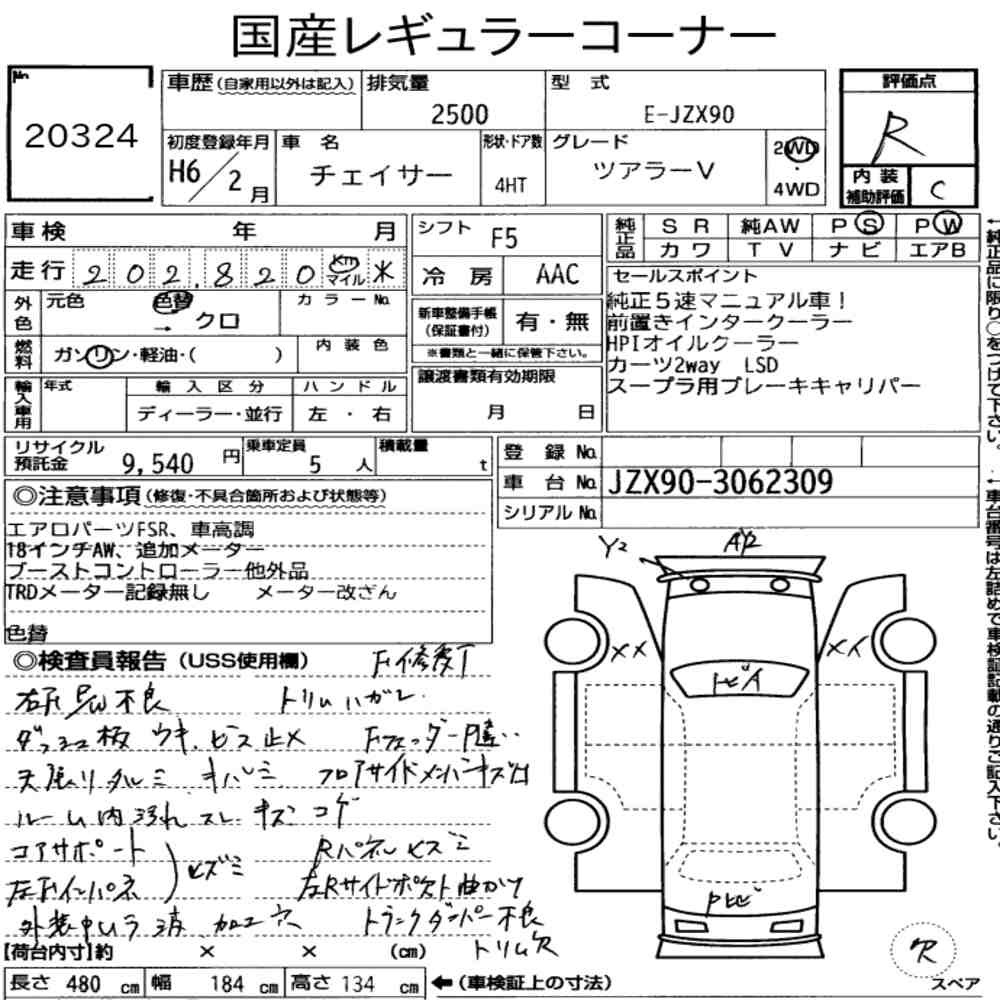 国産レギュラーコーナー
No.
20324
車歴(自家用以外は記入)
排気量
2500
型 式
E-JZX90
評価点
R
初度登録年月
H6/2月
車 名
チェイサー
形状・ドア数
4HT
グレード
ツアラーV
2WD
・
4WD
内 装
補助評価
C
車検 年 月
シフト
F5
純正品
SR 純AW PS PW
カワ TV ナビ エアB
走行 202,820 km マイル 米
冷 房
AAC
セールスポイント
純正5速マニュアル車!
前置きインタークーラー
HPIオイルクーラー
カーツ2way LSD
スープラ用ブレーキキャリパー
外色
元色
色替
カラーNo.
→ クロ
新車整備手帳
(保証書付)
有・無
※書類と一緒に保管下さい。
燃料
ガソリン・軽油・( )
内装色
輸入車用
年式
輸入区分
ハンドル
ディーラー・並行
左 ・ 右
譲渡書類有効期限
月 日
リサイクル
預託金
9,540 円
乗車定員
5 人
積載量
t
登 録 No.
車 台 No.
JZX90-3062309
シリアル No.
◎注意事項(修復・不具合箇所および状態等)
エアロパーツFSR、車高調
18インチAW、追加メーター
ブーストコントローラー他外品
TRDメーター記録無し メーター改ざん
色替
◎検査員報告(USS使用欄)
トリムハガレ
ダッシュ板 ウキ、ビス止メ
天張りタルミ キバミ フロアサイドメンバーキズ凹
ルーム内 汚れ スレ キズ コゲ
コアサポート
ヒズミ
Rパネルヒズミ
左Rサイドポスト曲がり
加工穴
トランクダンパー不良
トリム欠
Y2
A/2
××
トビA
欠
スペア
【荷台内寸】約 × × (cm)
長さ 480 cm 幅 184 cm 高さ 134 cm ←(車検証上の寸法)
←純正品に限り○をつけて下さい。
←車台番号は左詰めで車検証記載の通りご記入下さい。